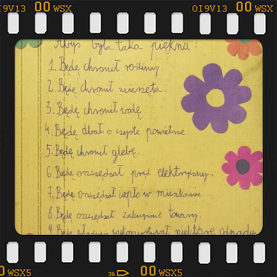 OI9V13 00 WSX OI9V13 00 WSX
Abyś była taka piękna!
1. Będę chronił rośliny.
2. Będę chronił zwierzęta.
3. Będę chronił wodę
4. Będę dbał o czyste powietrze.
5. Będę chronił glebę.
6. Będę oszczędzał prąd elektryczny.
7. Będę oszczędzał ciepło w mieszkaniu
8. Będę oszczędzał zakupione towary.
9. Będę wykorzystywał niektóre odpady
00 WSX5 36 00 WSX5